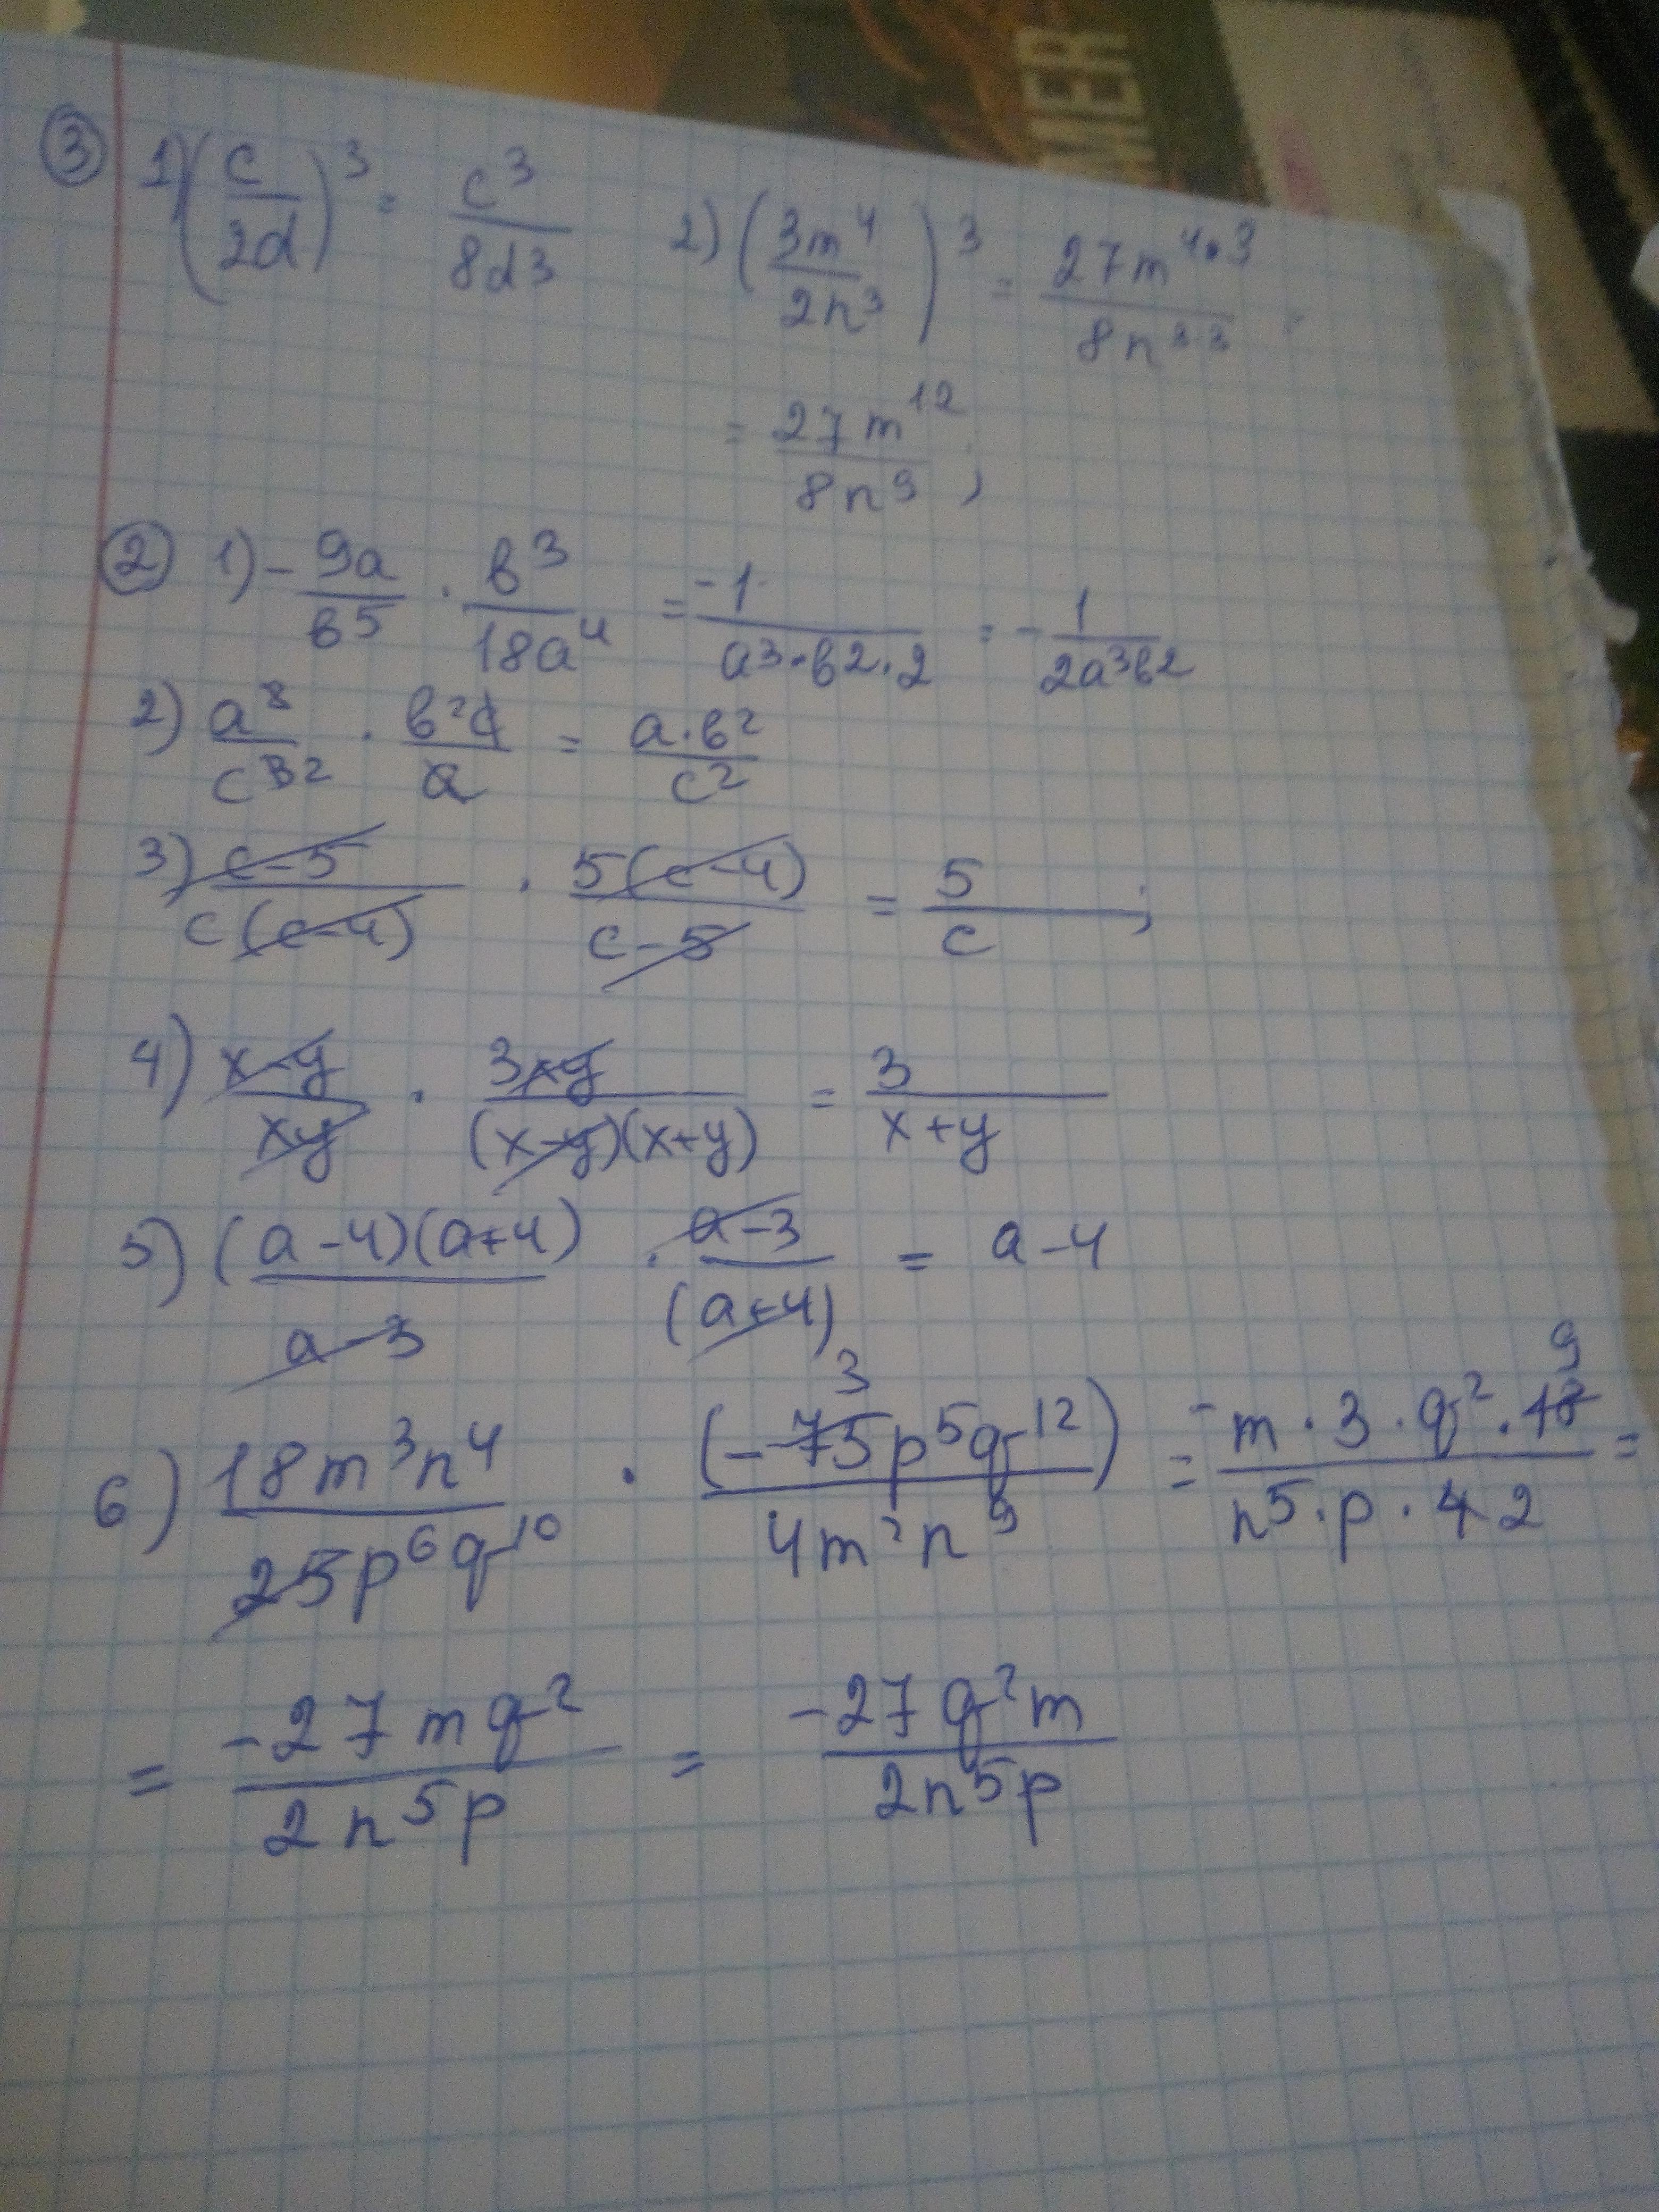 MER
③ 1) (c/2d)³ = c³/8d³ 2) (3m⁴/2n³)³ = 27m⁴·³/8n³³ =
= 27m¹²/8n⁹ ;
② 1) - 9a/в⁵ · в³/18a⁴ = -1/a³·в²·2 = - 1/2a³в²
2) · в²c/a = a·в²/c²
3) c-5/c(c-4) · 5(c-4)/c-5 = 5/c ;
4) x-y/xy · 3xy/(x-y)(x+y) = 3/x+y
5) (a-4)(a+4)/a-3 · a-3/(a+4) = a-4
6) 18m³n⁴/25p⁶q¹⁰ · (-75p⁵q¹²/4m²n⁹) 3 = -m·3·q²·18/n⁵·p·4 2 9 =
= -27mq²/2n⁵p = -27q²m/2n⁵p